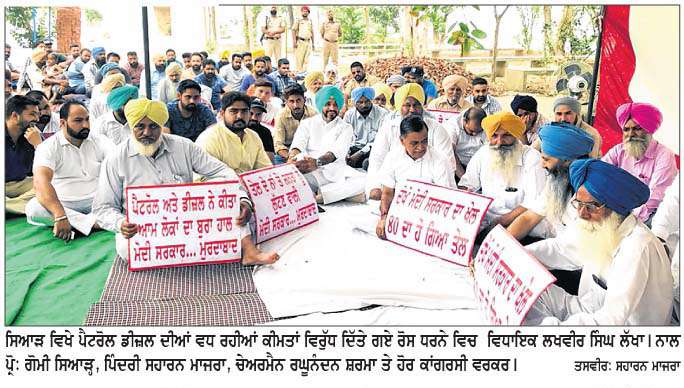 ਪੈਟਰੋਲ ਅਤੇ ਡੀਜ਼ਲ ਨੇ ਕੀਤਾ
ਆਮ ਲੋਕਾਂ ਦਾ ਬੁਰਾ ਹਾਲ
ਮੋਦੀ ਸਰਕਾਰ... ਮੁਰਦਾਬਾਦ
ਲੁੱਟਣ ਵਾਲੀ
ਮੋਦੀ ਸਰਕਾਰ... ਮੁਰਦਾਬਾਦ
ਦੇਖੋ ਮੋਦੀ ਸਰਕਾਰ ਦਾ ਖੇਲ
40 ਦਾ ਹੋ ਗਿਆ ਤੇਲ
ਦੇਖੋ ਮੋਦੀ ਸਰਕਾਰ ਦਾ
ਸਿਆੜ ਵਿਖੇ ਪੈਟਰੋਲ ਡੀਜ਼ਲ ਦੀਆਂ ਵਧ ਰਹੀਆਂ ਕੀਮਤਾਂ ਵਿਰੁੱਧ ਦਿੱਤੇ ਗਏ ਰੋਸ ਧਰਨੇ ਵਿਚ ਵਿਧਾਇਕ ਲਖਵੀਰ ਸਿੰਘ ਲੱਖਾ। ਨਾਲ
ਪ੍ਰੋ: ਗੋਮੀ ਸਿਆੜ੍ਹ, ਪਿੰਦਰੀ ਸਹਾਰਨ ਮਾਜਰਾ, ਚੇਅਰਮੈਨ ਰਘੂਨੰਦਨ ਸ਼ਰਮਾ ਤੇ ਹੋਰ ਕਾਂਗਰਸੀ ਵਰਕਰ। ਤਸਵੀਰ: ਸਹਾਰਨ ਮਾਜਰਾ